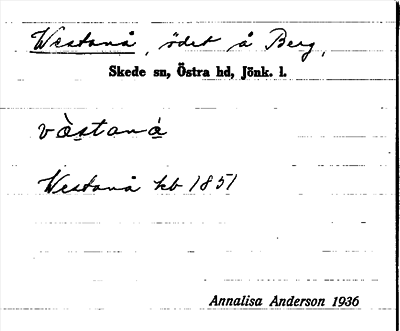 Westanå, ödet å Berg,
Skede sn, Östra hd, Jönk. l.
vä̀staná̤
Westanå kb 1851
Annalisa Anderson 1936